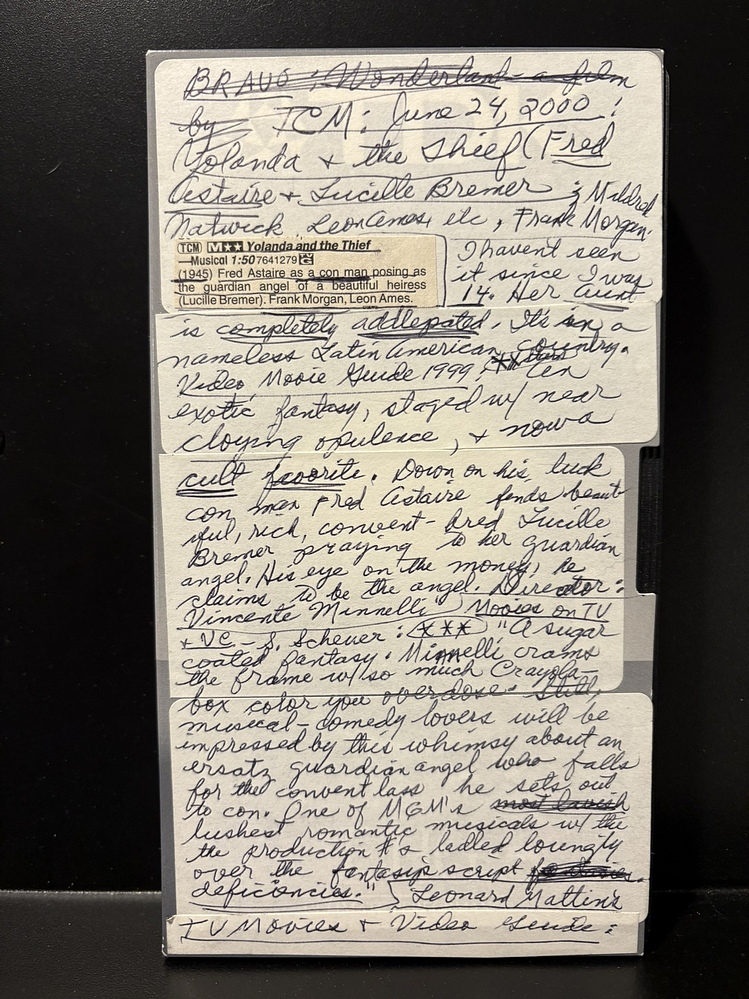 BRAVO: Wonderland - a film
by TCM: June 24, 2000:
Yolanda + the Thief (Fred
Astaire + Lucille Bremer; Mildred
Natwick, Leon Ames, etc, Frank Morgan.
TCM M★★ Yolanda and the Thief
—Musical 1:50 7641279
(1945) Fred Astaire as a con man posing as
the guardian angel of a beautiful heiress
(Lucille Bremer). Frank Morgan, Leon Ames.
I havent seen
it since I was
14. Her Aunt
is completely addlepated. It's in a
nameless Latin American country.
Video Movie Guide 1999: An
exotic fantasy, staged w/ near
cloying opulence, + now a
cult favorite. Down on his luck
con man Fred Astaire finds beaut-
iful, rich, convent-bred Lucille
Bremer praying to her guardian
angel. His eye on the money, he
claims to be the angel. Director:
Vincente Minnelli Movies on TV
+ VC.- S. Scheuer: (★★★) "A sugar
coated fantasy. Minnelli crams
the frame w/ so much Crayola-
box color you overdose. Still,
musical-comedy lovers will be
impressed by this whimsy about an
ersatz guardian angel who falls
for the convent lass he sets out
to con. One of MGM's most lavish
lushest romantic musicals w/ the
the production #'s ladled lovingly
over the script
deficiencies." Leonard Maltin's
TV Movies + Video Guide: